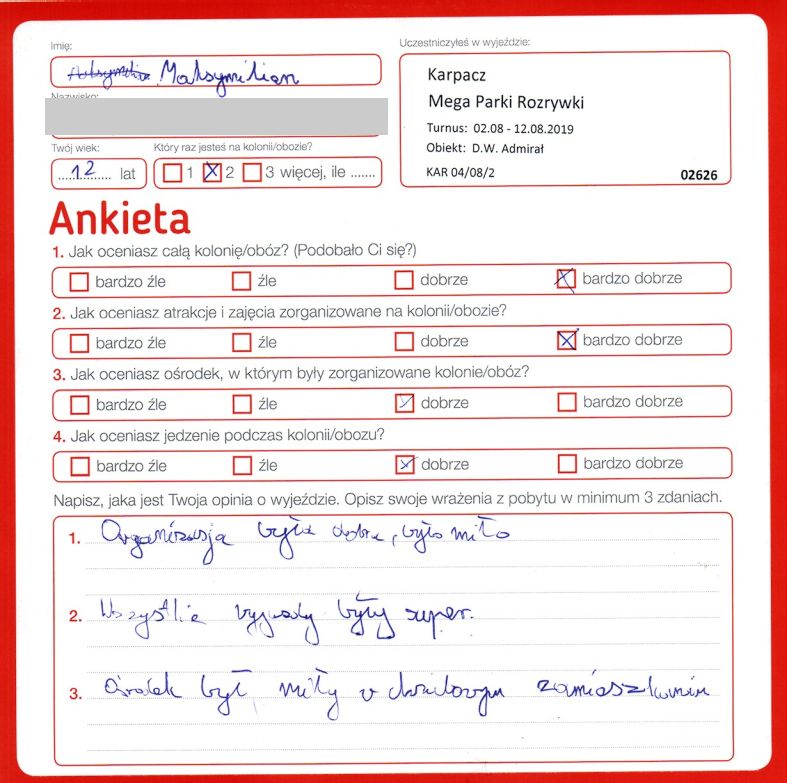 Imię:
Maksymilian
Nazwisko:
Uczestniczyłeś w wyjeździe:
Karpacz
Mega Parki Rozrywki
Turnus: 02.08 - 12.08.2019
Obiekt: D.W. Admirał
KAR 04/08/2 02626
Twój wiek: Który raz jesteś na kolonii/obozie?
12 lat 1 2 3 więcej, ile .......
Ankieta
1. Jak oceniasz całą kolonię/obóz? (Podobało Ci się?)
bardzo źle źle dobrze bardzo dobrze
2. Jak oceniasz atrakcje i zajęcia zorganizowane na kolonii/obozie?
bardzo źle źle dobrze bardzo dobrze
3. Jak oceniasz ośrodek, w którym były zorganizowane kolonie/obóz?
bardzo źle źle dobrze bardzo dobrze
4. Jak oceniasz jedzenie podczas kolonii/obozu?
bardzo źle źle dobrze bardzo dobrze
Napisz, jaka jest Twoja opinia o wyjeździe. Opisz swoje wrażenia z pobytu w minimum 3 zdaniach.
1. Organizacja była dobra, było miło
2. Wszystkie wyjazdy były super.
3. Ośrodek był miły w chwilowym zamieszkaniu